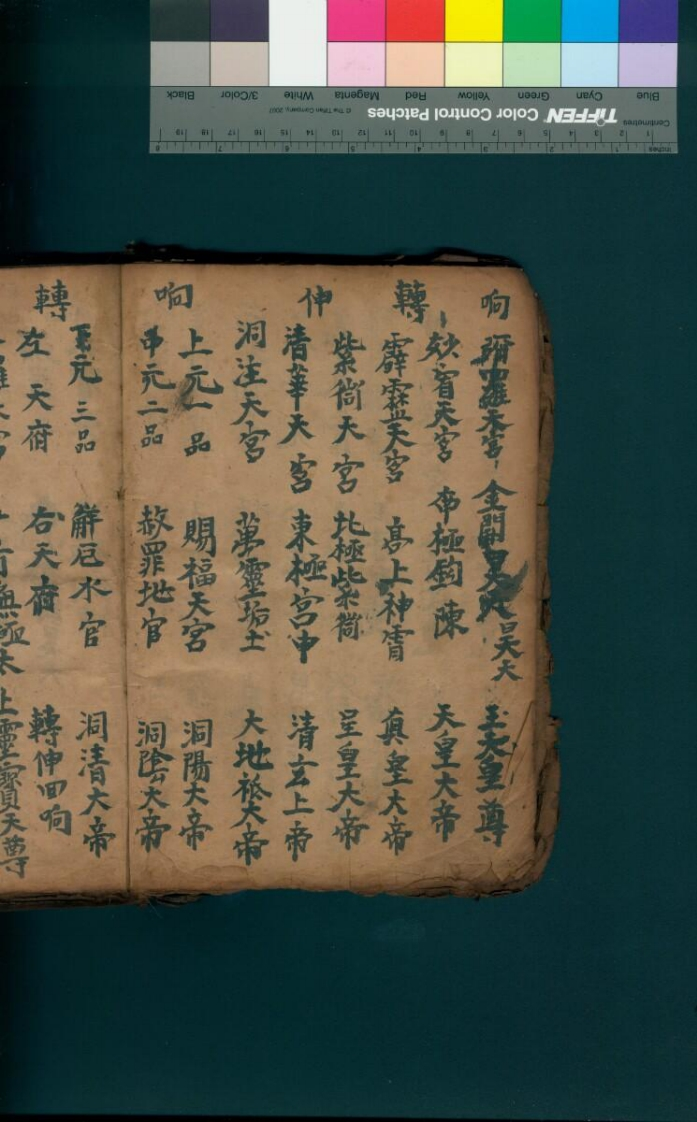 Blue Cyan Green Yellow Red Magenta White 3/Color Black
TIFFEN Color Control Patches © The Tiffen Company, 2007
Centimetres
Inches
响 彌羅天宮 金闕昊天 玉天皇尊
昊天
妙宥天宮 帝極鈎陳 天皇大帝
轉 霹靂天宮 髙上神霄 真皇大帝
紫微天宮 北極紫微 呈皇大帝
伸 清華天宮 東極宮中 清玄上帝
洞注天宮 萬靈垢土 大地祇大帝
上元一品 賜福天宮 洞陽大帝
响 中元二品 赦罪地官 洞陰大帝
下元三品 觧厄水官 洞清大帝
轉 左天府 右天府 轉伸回响
無極太上靈寶天尊